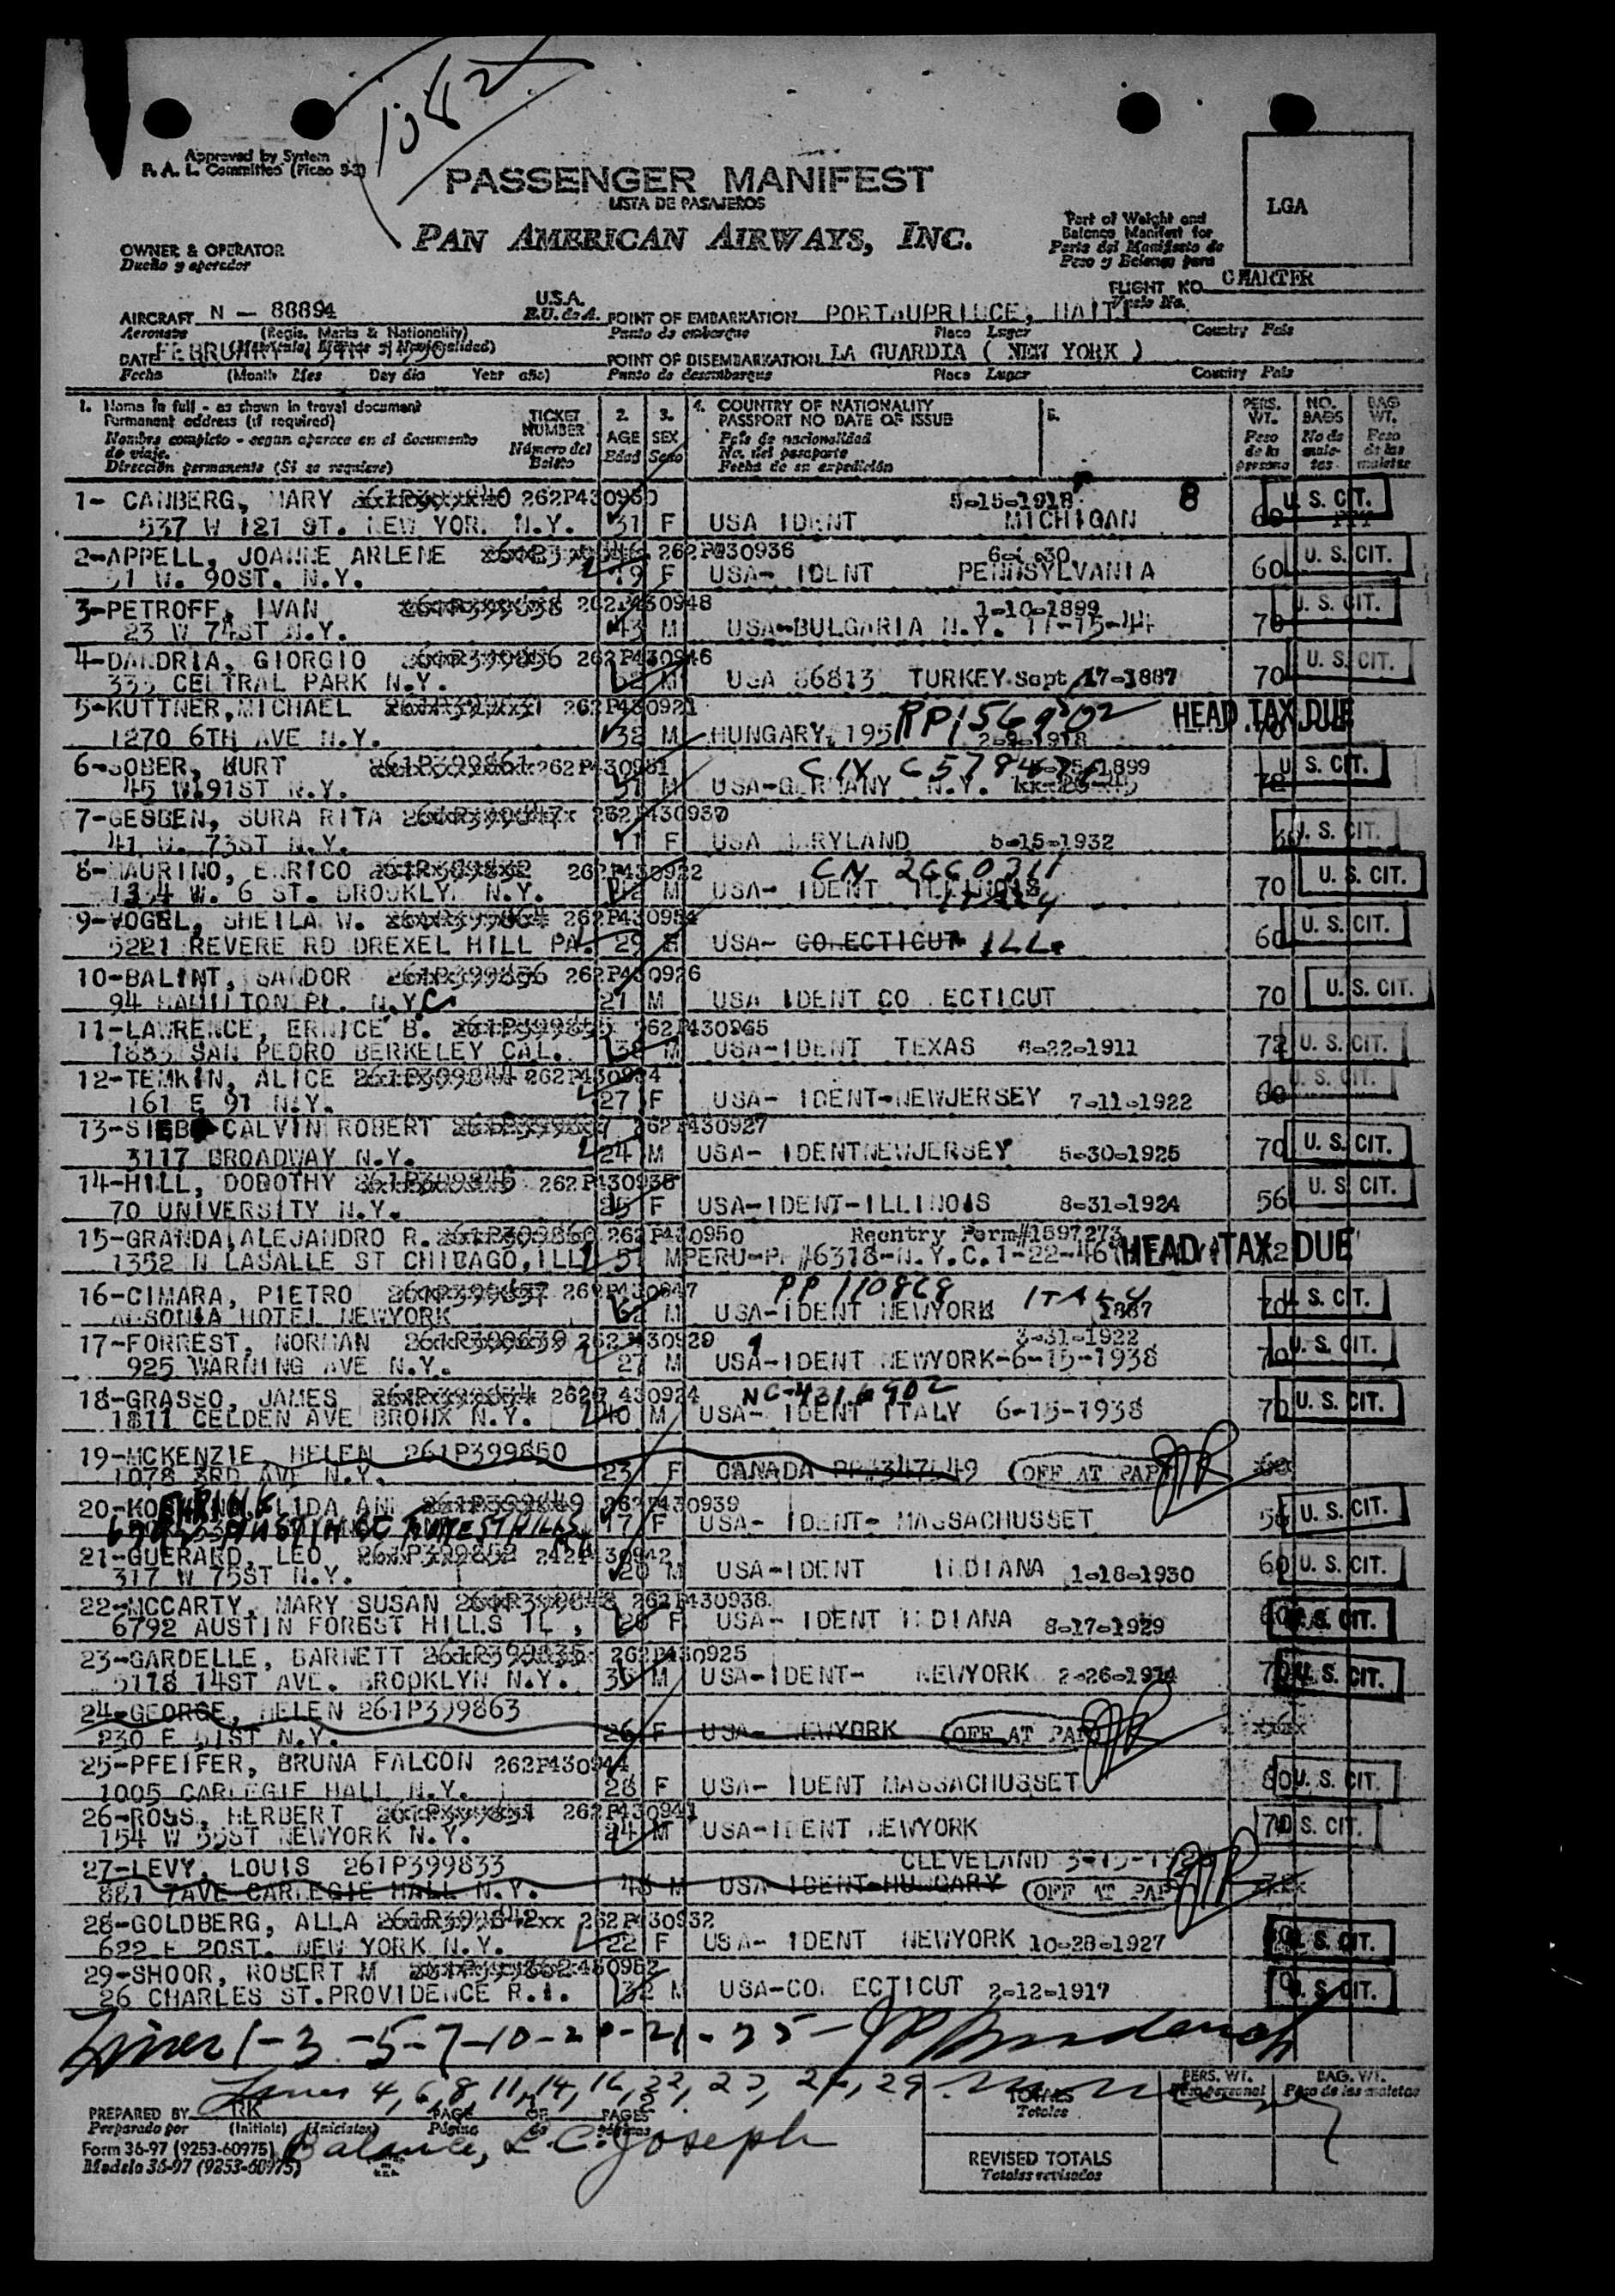 1082
Approved by System
F. A. L. Committee (Ficao 9-3)
PASSENGER MANIFEST
LISTA DE PASAJEROS
PAN AMERICAN AIRWAYS, INC.
LGA
Part of Weight and
Balance Manifest for
Parte del Manifiesto de
Peso y Balance para
OWNER & OPERATOR
Dueño y operador
FLIGHT NO. CHARTER
Vuelo No.
AIRCRAFT N - 88894 U.S.A. E.U. de A. POINT OF EMBARKATION PORTAUPRINCE, HAITI
Aeronave (Regis. Marks & Nationality) Punto de embarque Place Lugar Country País
DATE FEBRUARY POINT OF DISEMBARKATION LA GUARDIA ( NEW YORK )
Fecha (Month Mes Day día Year año) Punto de desembarque Place Lugar Country País
1. Name in full - as shown in travel document
Permanent address (if required)
Nombre completo - segun aparece en el documento
de viaje.
Dirección permanente (Si se requiere)
TICKET NUMBER
Número del Boleto
2. AGE Edad
3. SEX Sexo
4. COUNTRY OF NATIONALITY
PASSPORT NO DATE OF ISSUE
País de nacionalidad
No. del pasaporte
Fecha de su expedición
5.
PERS. WT. Peso de la persona
NO. BAGS No de maletas
BAG WT. Peso de las maletas
1- CANBERG, MARY 262P430950 5-15-1918 8 U. S. CIT.
537 W 121 ST. NEW YOR N.Y. 31 F USA IDENT MICHIGAN
2-APPELL, JOANNE ARLENE 262P430936 U. S. CIT.
W. 90ST. N.Y. 19 F USA- IDENT PENNSYLVANIA 60
3-PETROFF, IVAN 262P430948 1-10-1899 U. S. CIT.
23 W 74ST N.Y. 43 M USA-BULGARIA N.Y. 11-15-44 70
4-DANDRIA, GIORGIO 262P430946 U. S. CIT.
333 CENTRAL PARK N.Y. 62 M USA 86813 TURKEY Sept 17-1887 70
5-KUTTNER,MICHAEL 262P430921 HEAD TAX DUE
1270 6TH AVE N.Y. 32 M HUNGARY, 2-9-1918
6-SOBER, KURT 262P430931 U. S. CIT.
45 W.91ST N.Y. 51 M USA-GERMANY N.Y.
7-GESBEN, SURA RITA 262P430930 U. S. CIT.
41 W. 73ST N.Y. F USA MARYLAND 5-15-1932
8-MAURINO, ENRICO 262P430922 CN 2660311 U. S. CIT.
1334 W. 6 ST. BROOKLY N.Y. M USA- IDENT ILLINOIS 70
9-VOGEL, SHEILA W. 262P430954 U. S. CIT.
5221 REVERE RD DREXEL HILL PA. 29 F USA- CO ECTICUT ILL. 60
10-BALINT, SANDOR 262P430926 U. S. CIT.
94 HAMILTON PL. N.Y.C. M USA IDENT CO ECTICUT 70
11-LAWRENCE, ERNICE B. 262P430965 U. S. CIT.
SAN PEDRO BERKELEY CAL. 38 M USA-IDENT TEXAS 6-22-1911 72
12-TEMKIN, ALICE 262P430934 U. S. CIT.
161 E 91 N.Y. 27 F USA- IDENT-NEWJERSEY 7-11-1922 60
13- CALVIN ROBERT 262P430927 U. S. CIT.
3117 BROADWAY N.Y. 24 M USA- IDENTNEWJERSEY 5-30-1925 70
14-HILL, DOROTHY 262P430935 U. S. CIT.
70 UNIVERSITY N.Y. 25 F USA-IDENT-ILLINOIS 8-31-1924 56
15-GRANDA,ALEJANDRO R. 262P430950 Reentry Perm#1597273 HEAD TAX DUE
1352 N LASALLE ST CHICAGO,ILL 51 M PERU-P. #6318-N.Y.C.1-22-46
16-CIMARA, PIETRO 262P430947 PP 110868 ITALY U. S. CIT.
ANSONIA HOTEL NEWYORK 62 M USA-IDENT NEWYORK 1887 70
17-FORREST, NORMAN 262P430929 3-31-1922 U. S. CIT.
925 WARNING AVE N.Y. 27 M USA-IDENT NEWYORK-6-15-1938 70
18-GRASSO, JAMES 430924 U. S. CIT.
1811 CELDEN AVE BRONX N.Y. 40 M USA- IDENT ITALY 6-15-1938 70
19-MCKENZIE, HELEN 261P399850
1078 3RD AVE N.Y. 23 F CANADA OFF AT PAP
20- LIDA ANN 262P430939 U. S. CIT.
17 F USA- IDENT- MASSACHUSSET 56
21-GUERARD, LEO 242P430942 U. S. CIT.
317 W 75ST N.Y. 20 M USA-IDENT INDIANA 1-18-1930 60
22-MCCARTY, MARY SUSAN 262P430938 U. S. CIT.
6792 AUSTIN FOREST HILLS IL , 20 F USA- IDENT INDIANA 8-17-1929
23-GARDELLE, BARNETT 262P430925 U. S. CIT.
5118 14ST AVE. BROOKLYN N.Y. 35 M USA-IDENT- NEWYORK 2-26-1914
24-GEORGE, HELEN 261P399863
230 E 51ST N.Y. 26 F USA- NEWYORK OFF AT PAP
25-PFEIFER, BRUNA FALCON 262P430944 U. S. CIT.
1005 CARNEGIE HALL N.Y. 28 F USA- IDENT MASSACHUSSET
26-ROSS, HERBERT 262P430941 U. S. CIT.
154 W 55ST NEWYORK N.Y. 24 M USA-IDENT NEWYORK 70
27-LEVY, LOUIS 261P399833 CLEVELAND
881 7AVE CARNEGIE HALL N.Y. M USA IDENT-HUNGARY OFF AT PAP
28-GOLDBERG, ALLA 262P430932 U. S. CIT.
622 E 20ST. NEW YORK N.Y. 22 F USA- IDENT NEWYORK 10-28-1927
29-SHOOR, ROBERT M U. S. CIT.
26 CHARLES ST.PROVIDENCE R.I. 32 M USA-CO ECTICUT 2-12-1917
Lines 4, 6, 8, 11, 14, 16, 22
TOTALS
Totales
PERS. WT.
Peso personal
BAG. WT.
Peso de las maletas
PREPARED BY RK PAGE OF PAGES
Preparado por (Initials) (Iniciales) Página de páginas
Form 36-97 (9253-60975)
Modelo 36-97 (9253-60975)
Balance, L. C. Joseph
REVISED TOTALS
Totales revisados